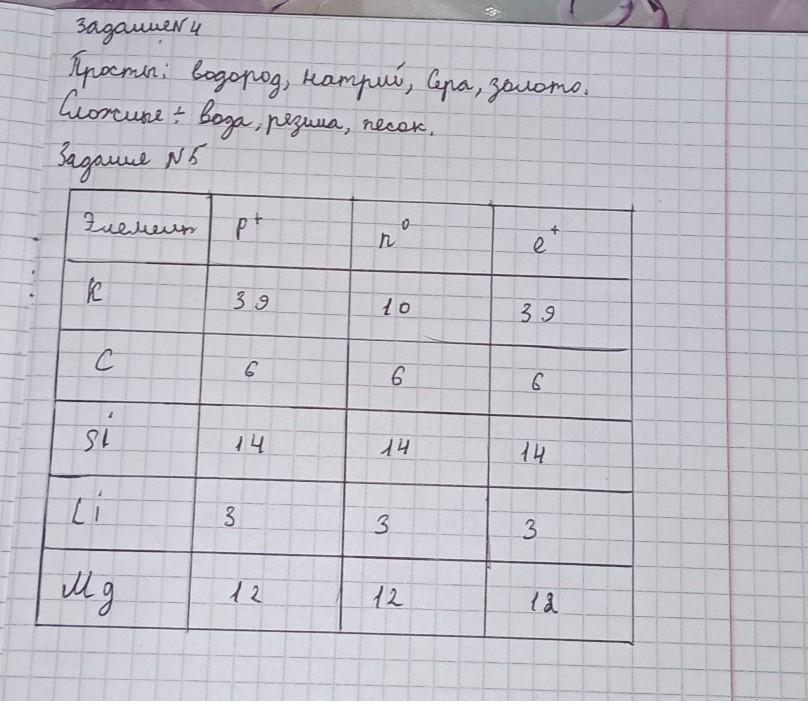 Задание N4
Просты: водород, натрий, Сера, золото.
Сложные ÷ вода, резина, песок.
Задание N5
Элемент p⁺ n⁰ e⁺
K 39 10 39
C 6 6 6
Si 14 14 14
Li 3 3 3
Mg 12 12 12